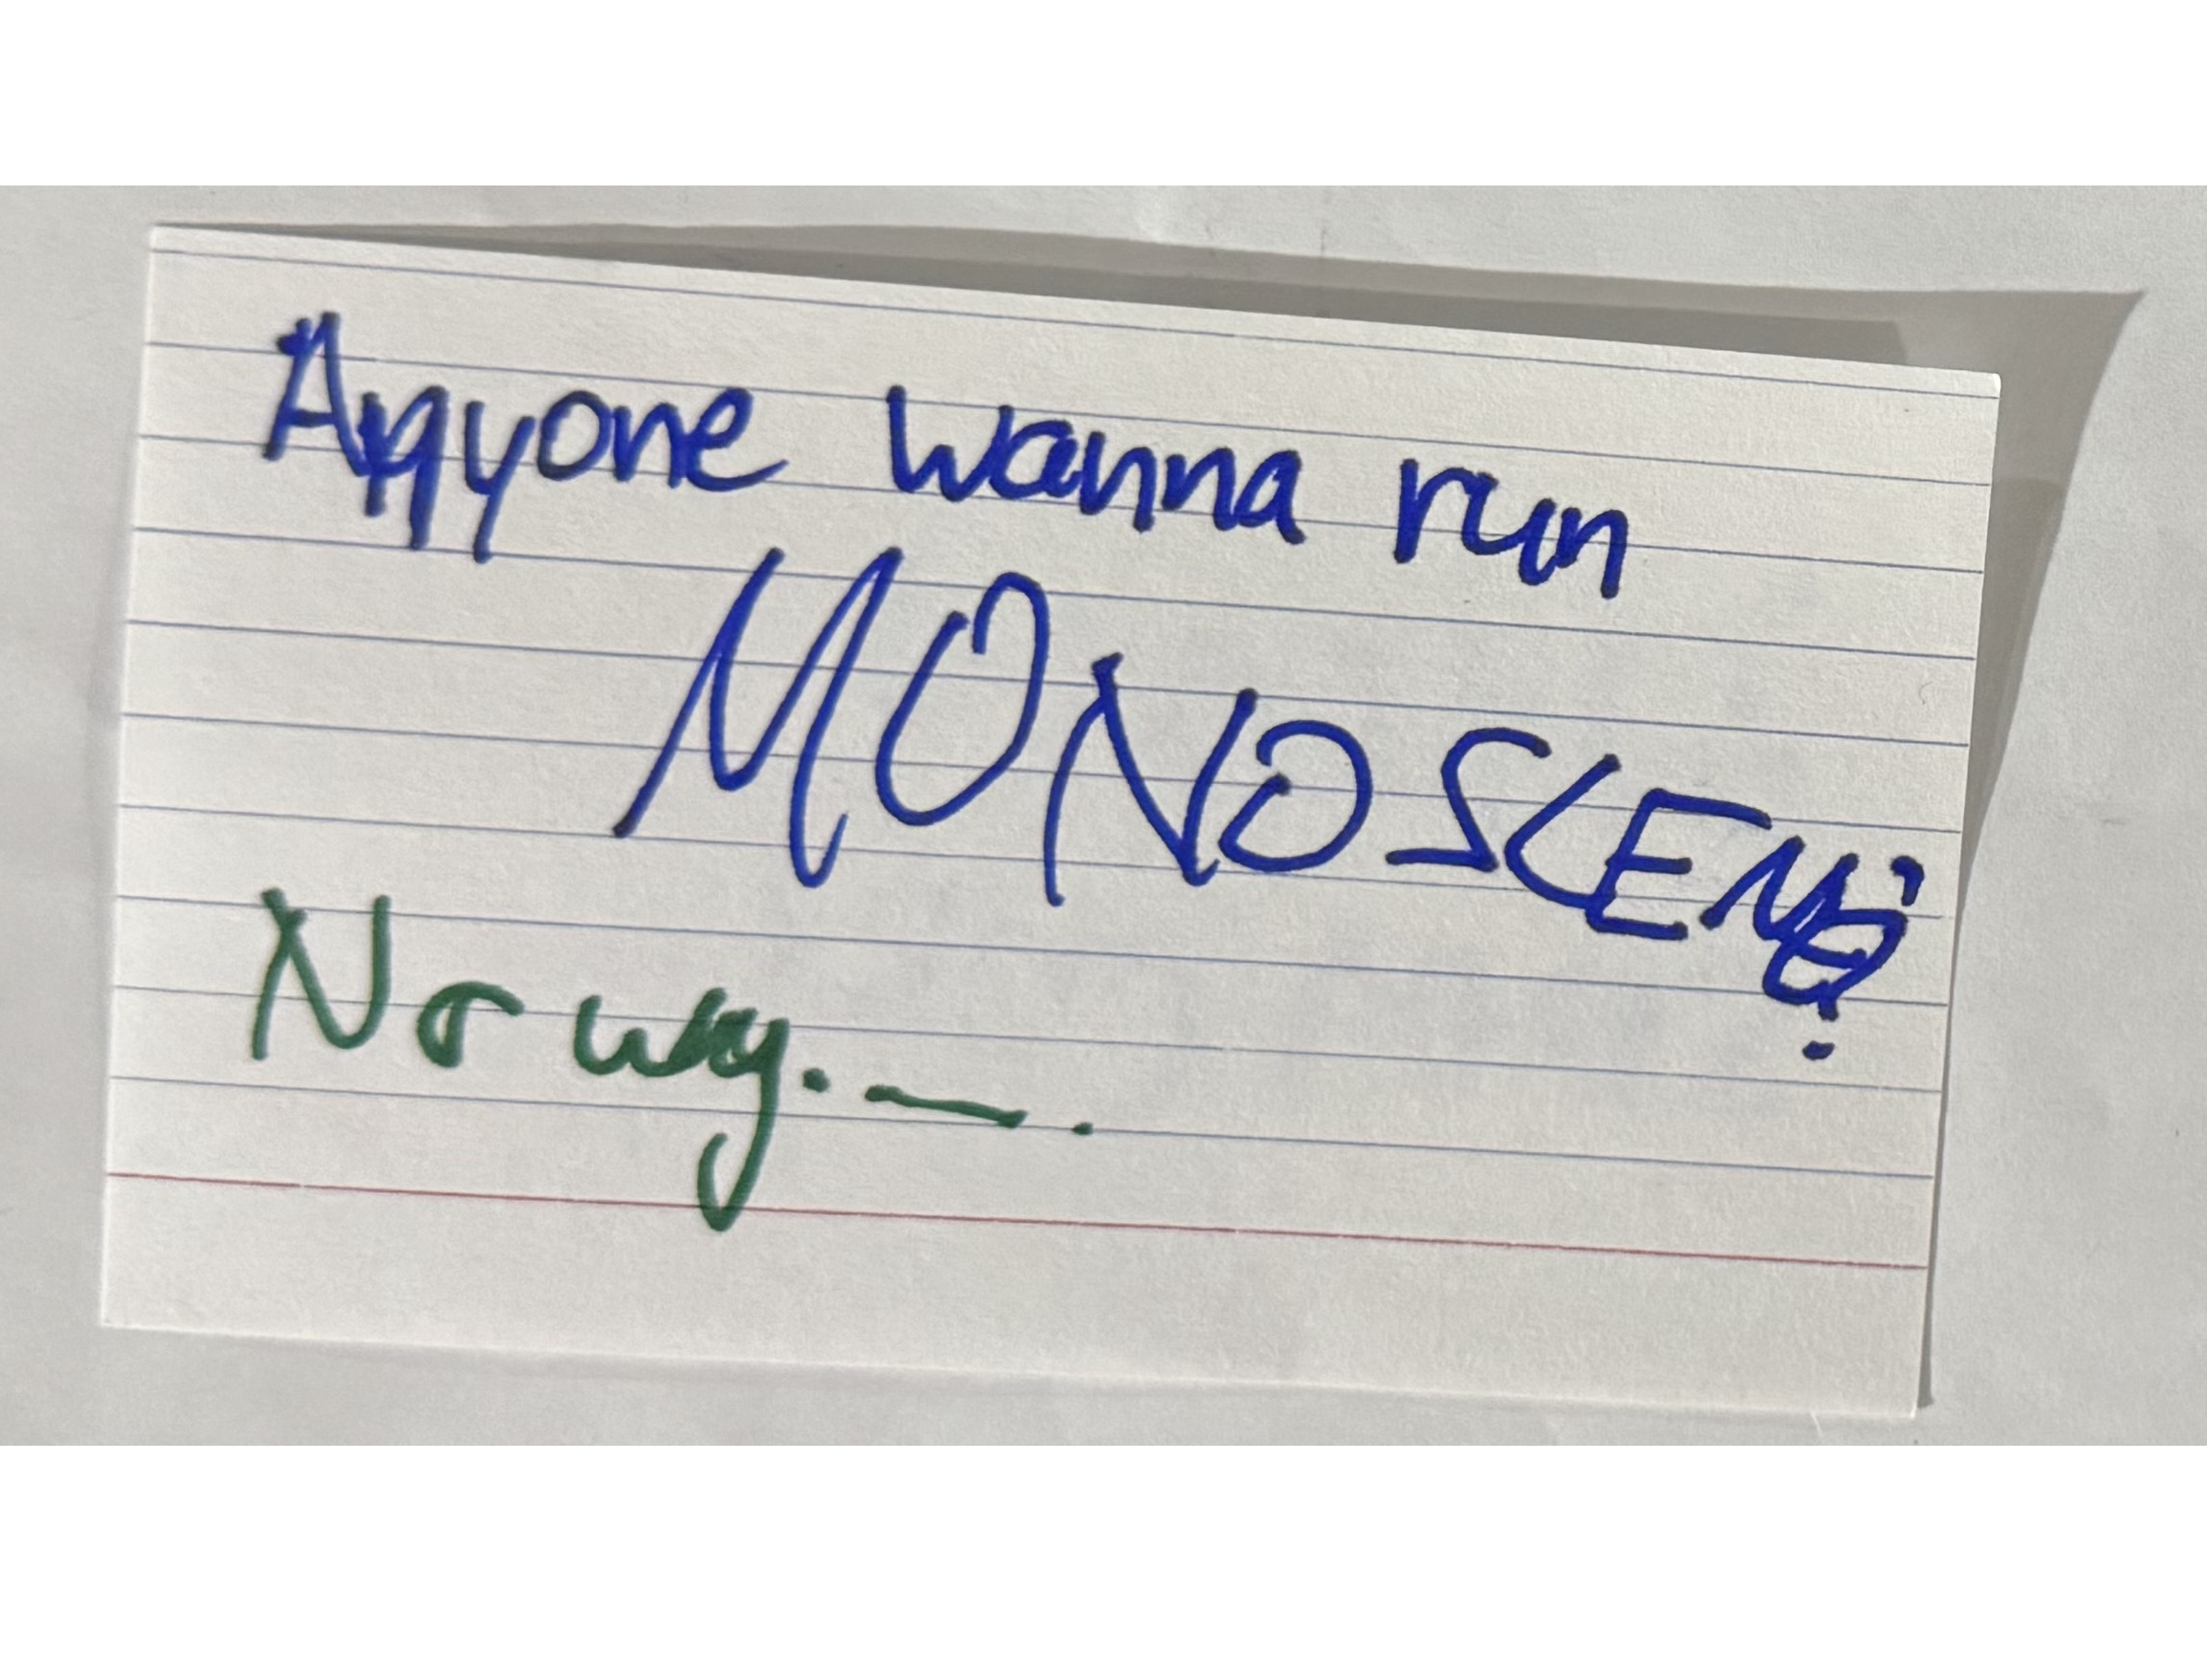 Anyone wanna run
MONOSCENE?
No way. — .